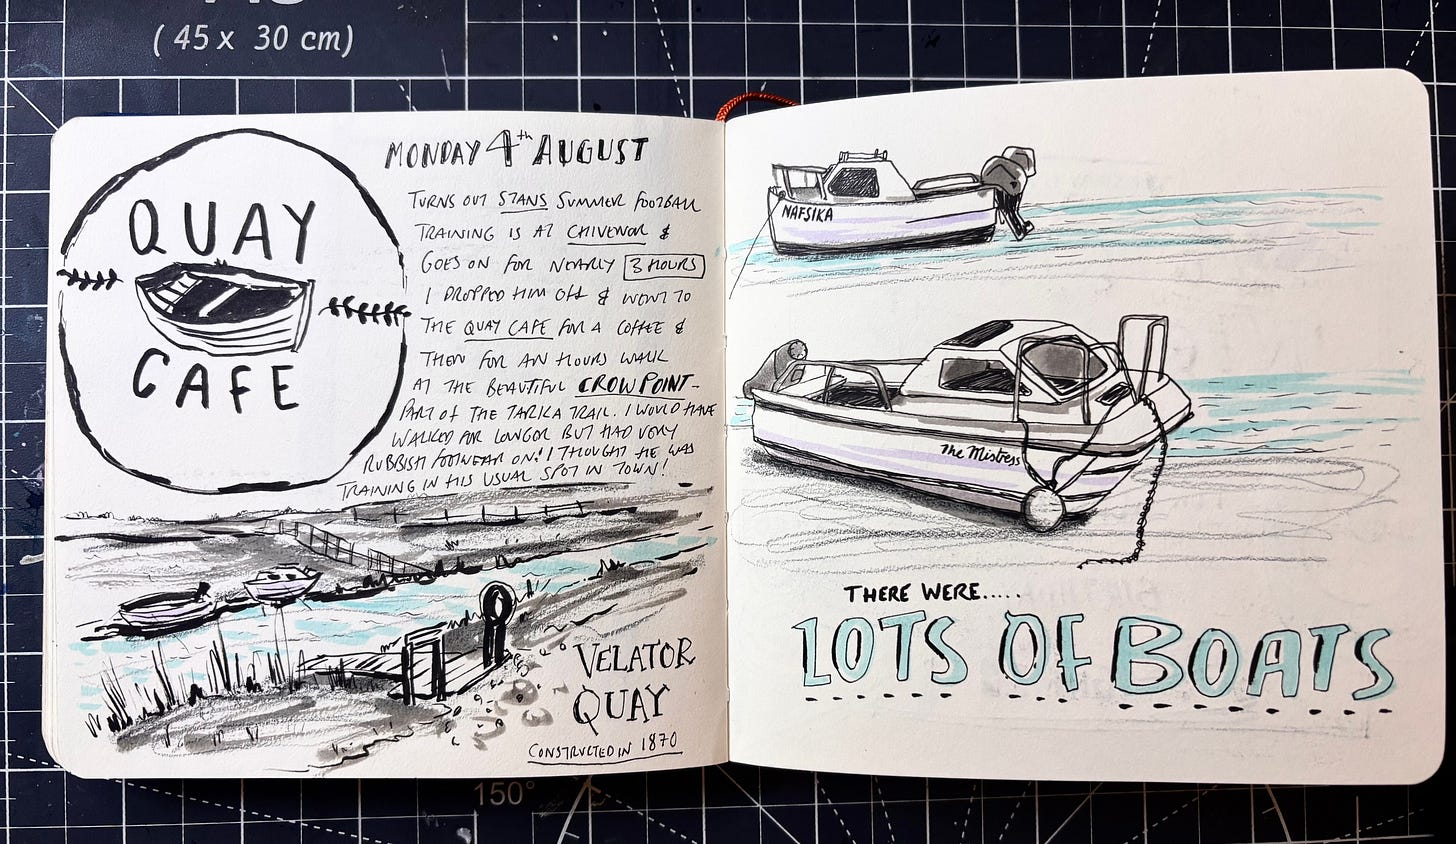 ( 45 x 30 cm)
QUAY
CAFE
MONDAY 4th AUGUST
TURNS OUT STANS SUMMER FOOTBALL
TRAINING IS AT CHIVENOR &
GOES ON FOR NEARLY 3 HOURS
I DROPPED HIM OFF & WENT TO
THE QUAY CAFE FOR A COFFEE &
THEN FOR AN HOURS WALK
AT THE BEAUTIFUL CROW POINT -
PART OF THE TARKA TRAIL. I WOULD HAVE
WALKED FAR LONGER BUT HAD VERY
RUBBISH FOOTWEAR ON! I THOUGHT HE WAS
TRAINING IN HIS USUAL SPOT IN TOWN!
VELATOR
QUAY
CONSTRUCTED IN 1870
NAFSIKA
The Mistress
THERE WERE.....
LOTS OF BOATS
150°